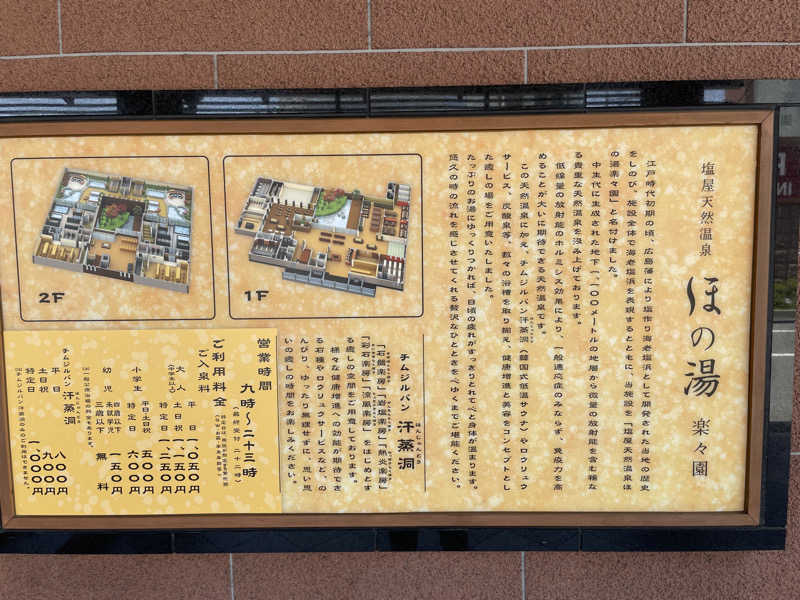 塩屋天然温泉
ほの湯 楽々園
江戸時代初期の頃、広島藩により塩作り海老塩浜として開発された当地の歴史
をしのび、施設全体で海老塩浜を表現するとともに、当施設を「塩屋天然温泉ほ
の湯楽々園」と名付けました。
中生代に生成された地下一、一〇〇メートルの地層から微量の放射能を含む稀な
る貴重な天然温泉を汲み上げております。
低線量の放射能のホルミシス効果により、一般適応症のみならず、免疫力を高
めることが大いに期待できる天然温泉です。
この天然温泉に加え、チムジルバン汗蒸洞（韓国式低温サウナ）やロウリュウ
サービス、炭酸泉等、数々の浴槽を取り揃え、健康増進と美容をコンセプトとし
た癒しの場をご用意いたしました。
たっぷりのお湯にゆっくりつかれば、日頃の疲れがすっきりとれて心と身体が温まります。
悠久の時の流れを感じさせてくれる贅沢なひとときを心ゆくまでご堪能ください。
1F
2F
チムジルバン 汗蒸洞
はんじゅんどう
「石儀楽房」「岩塩楽房」「熱炎楽房」
「彩石楽房」「涼風楽房」をはじめとす
る癒しの空間をご用意しております。
様々な健康増進への効能が期待でき
る石種やロウリュウサービスなど、の
んびり、ゆったり無理せずに、思い思
いの癒しの時間をお楽しみください。
営業時間 九時〜二十三時
（最終受付 二十二時）
ご利用料金
ご入泉料
大人 平日 一、〇五〇円
（中学生以上） 土日祝 一、一五〇円
特定日 一、二五〇円
小学生 平日土日祝 五〇〇円
特定日 六〇〇円
幼児 四歳以下 未就学児 一五〇円
三歳以下 無料
チムジルバン 汗蒸洞
平日 八〇〇円
土日祝 九〇〇円
特定日 一、〇〇〇円